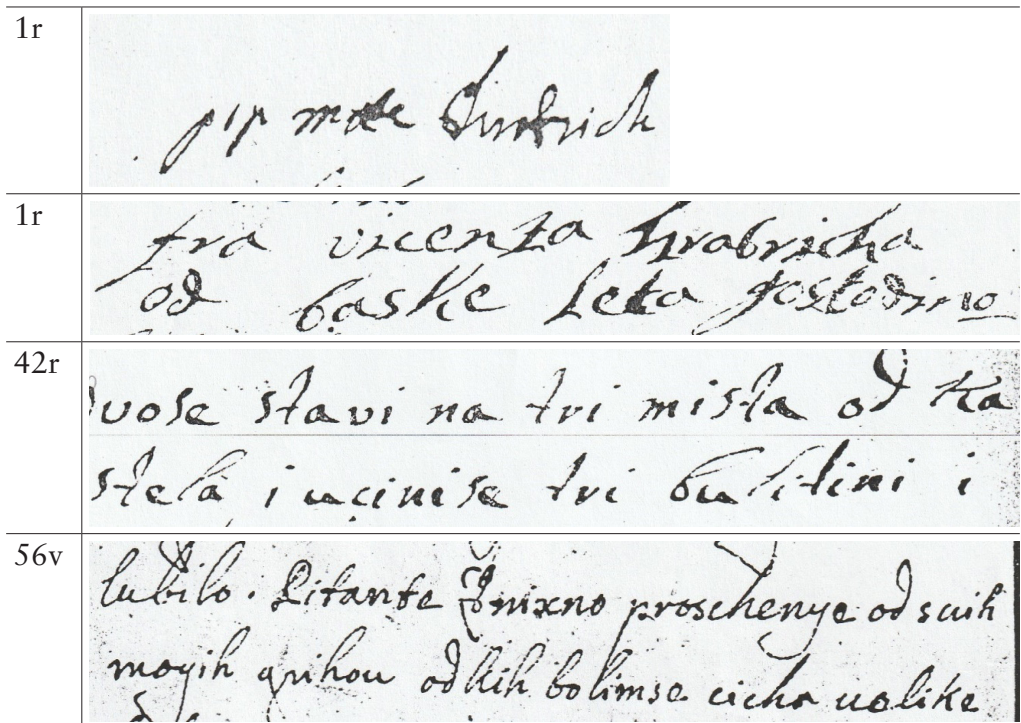 1r
pip mate
1r
fra vicenza hrabricha
od baske Leta gostodino
42r
vose stavi na tri mista od Ka
stela i ucinise tri bulitini i
56v
lubilo. Pitante ponixno proschenye od suih
moyih grihou od kih bolimse cicha uelike